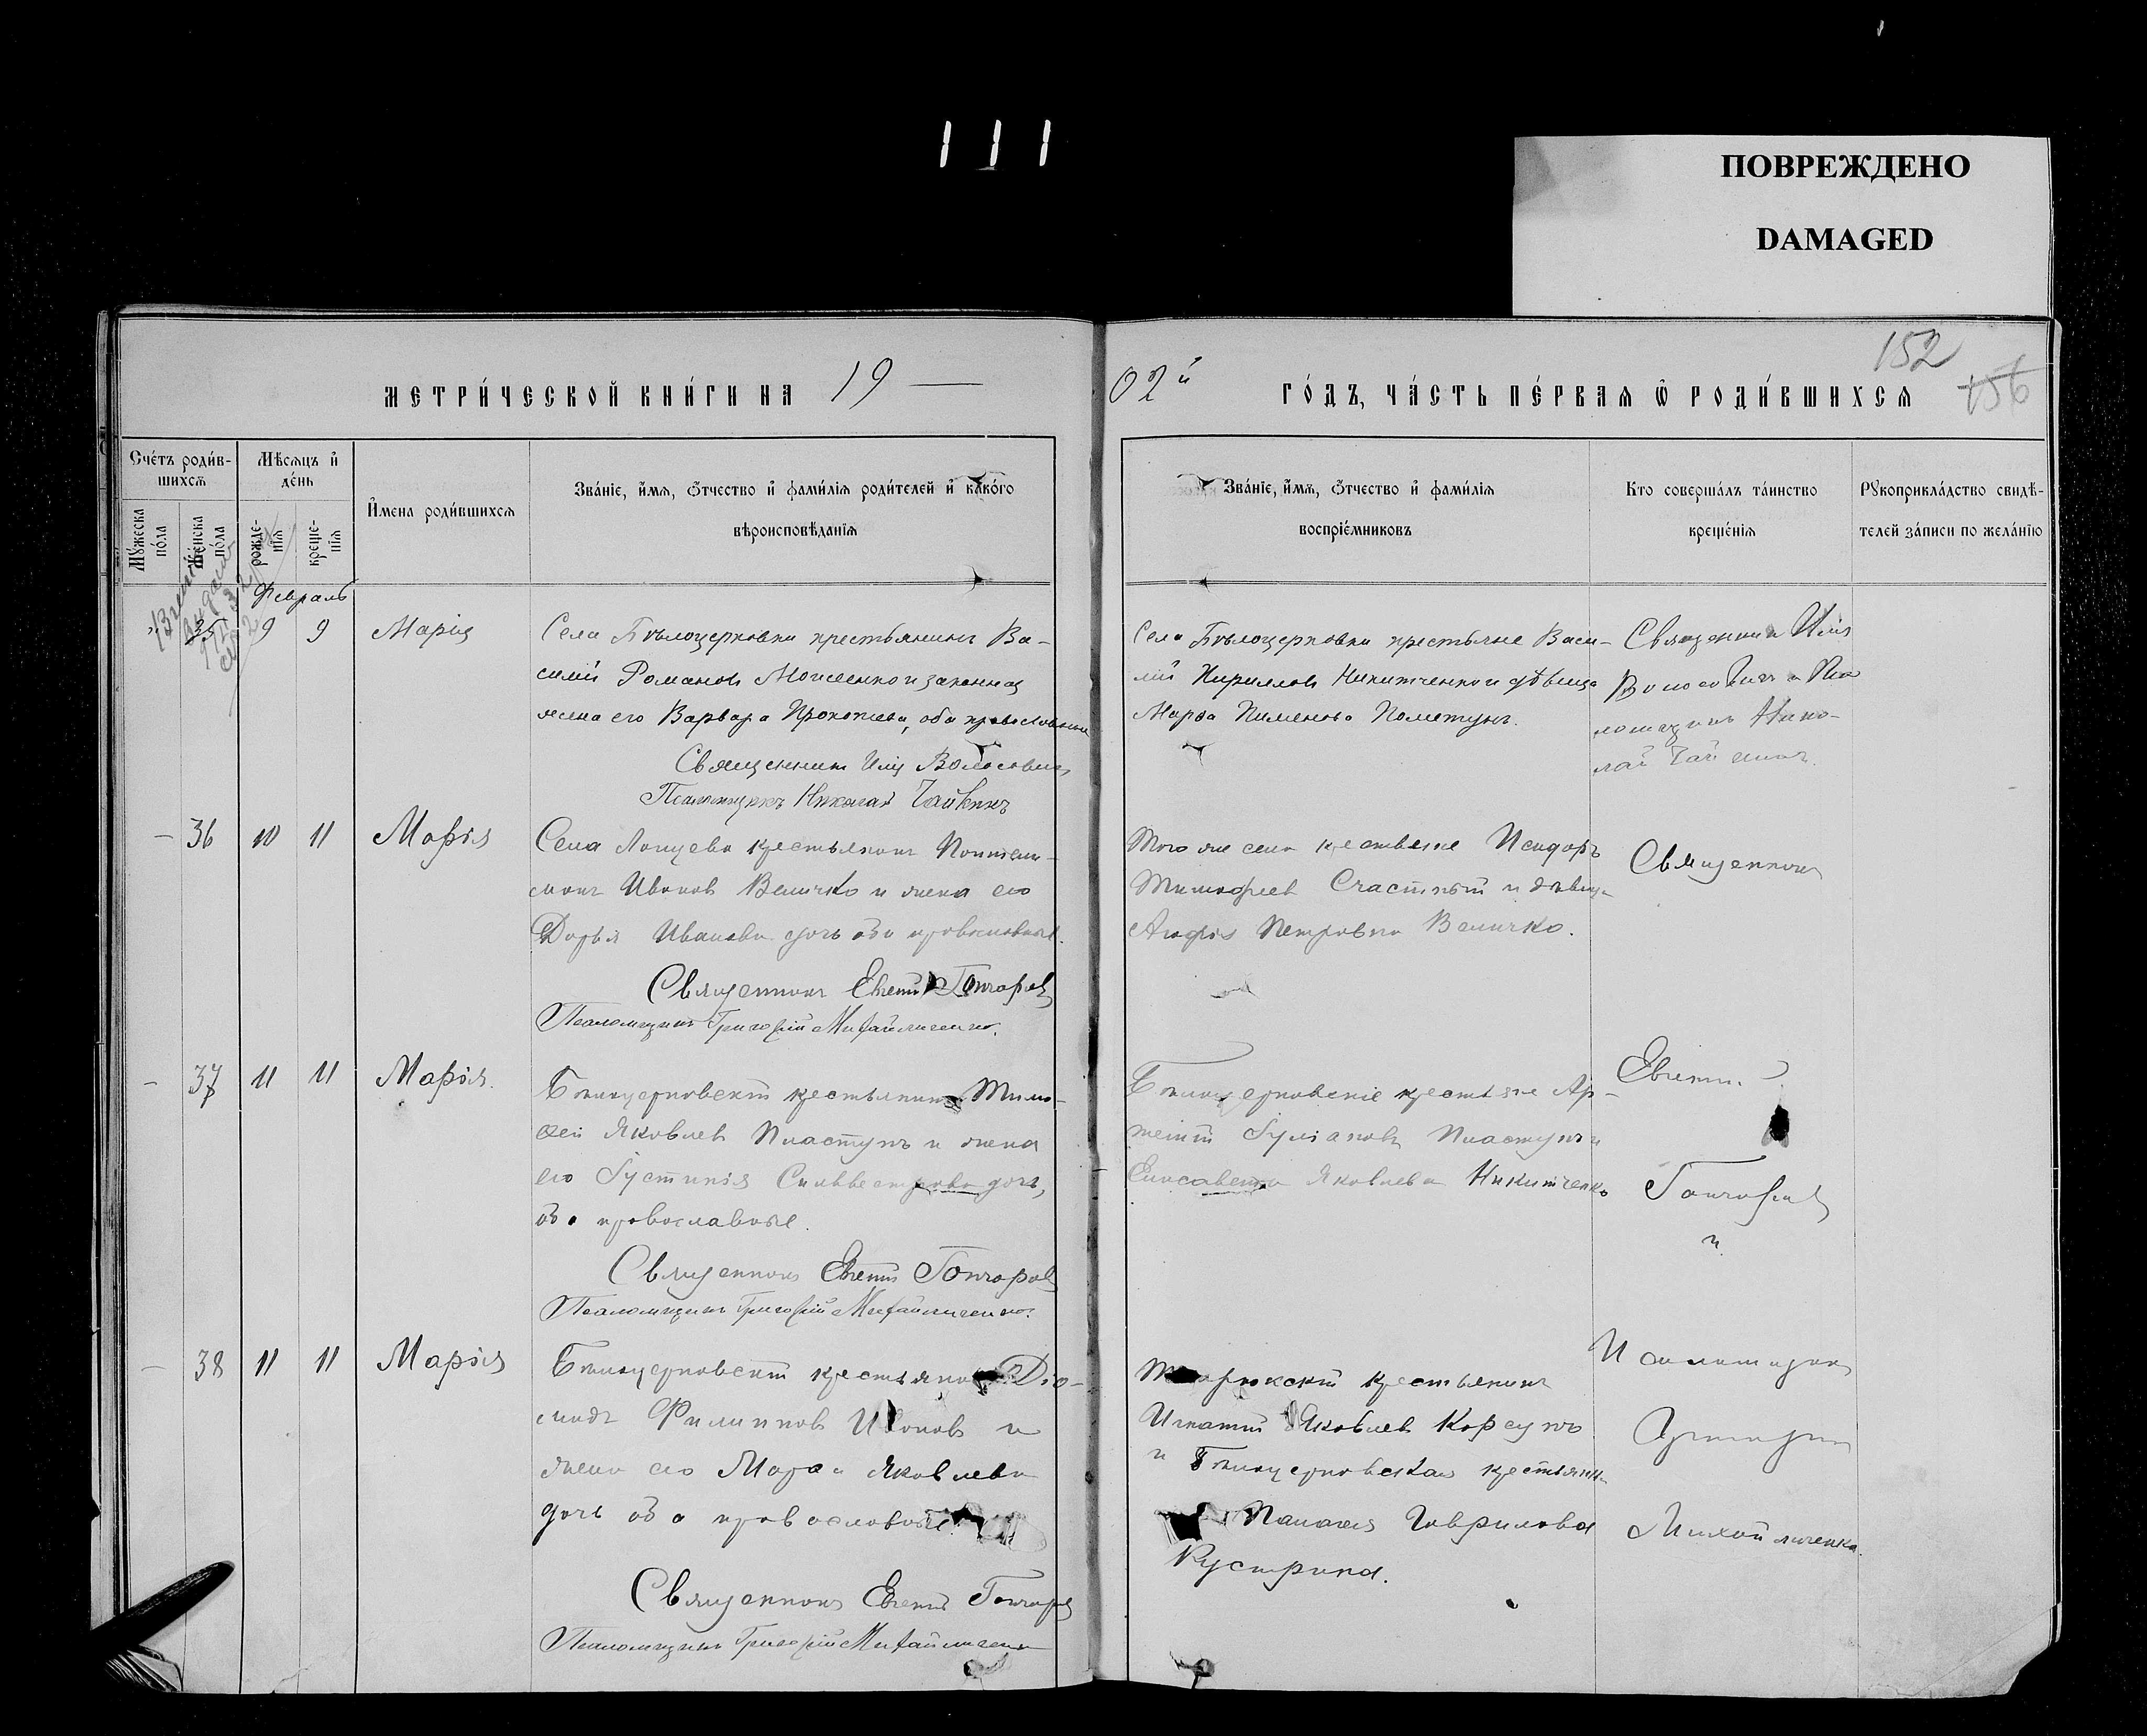 111
ПОВРЕЖДЕНО
DAMAGED
152
156
МЕТРИ́ЧЕСКОЙ КНИ́ГИ НА 19 —
02й ГО́ДЪ, ЧА́СТЬ ПЕ́РВАѦ Ѽ РОДИ́ВШИХСѦ
Сче́тъ роди́в-
шихсѧ
Мѣ́сѧцъ и҆
де́нь
Мꙋ́жеска
по́ла
Же́нска
по́ла
рожде-
нїѧ
креще-
нїѧ
И҆мена роди́вшихсѧ
Зва́нїе, и҆́мѧ, ѻ҆́тчество и҆ фамѝлїѧ роди́телей и҆ како́го
вѣроисповѣ́данїѧ
Зва́нїе, и҆́мѧ, ѻ҆́тчество и҆ фами́лїѧ
воспрїе́мниковъ
Кто соверша́лъ та́инство
креще́нїѧ
Рꙋкоприкла́дство свидѣ́-
телей за́писи по жела́нїю
Февраль
35 9 9 Марія
Села Бѣлоцерковки крестьянинъ Ва-
силій Романовъ Моисеенко и законная
жена его Варвара Прокопіева, оба православные
Священникъ Илія Волосовичъ
Псаломщикъ Николай Чайкинъ
Села Бѣлоцерковки крестьяне Васи-
лій Кирилловъ Никитченко и дѣвица
Марѳа Пименова Пометунъ.
Священникъ Илія
Волосовичъ и Пса
ломщикъ Нико-
лай Чайкинъ.
— 36 10 11 Марія
Села крестьянинъ Пантели-
монъ Ивановъ Величко и жена его
Дарья Иванова дочь оба православные.
Священникъ Евгеній Гончаровъ
Псаломщикъ Григорій Михайличенко.
Того же села крестьяне Исидоръ
Тимофеевъ Счастный и дѣвица
Петровна Величко.
Священникъ
— 37 11 11 Марія.
Бѣлоцерковскій крестьянинъ Тимо-
фей Яковлевъ Пластунъ и жена
его Іустинія Сильвестрова дочь,
оба православные.
Священникъ Евгеній Гончаровъ
Псаломщикъ Григорій Михайличенко.
Бѣлоцерковскіе крестьяне Ар-
темій Іуліановъ Пластунъ и
Елисавета Яковлева Никитченко
Евгеній
Гончаровъ
и
— 38 11 11 Марія
Бѣлоцерковскій крестьянинъ Діо-
мидъ Филипповъ Ивановъ и
жена его Марѳа Яковлева
дочь оба православные.
Священникъ Евгеній Гончаровъ
Псаломщикъ Григорій Михайличенко
крестьянинъ
Игнатій Яковлевъ Корсунъ
и Бѣлоцерковская крестьянка
Гаврилова
Кустрина.
Псаломщикъ
Григорій
Михайличенко.